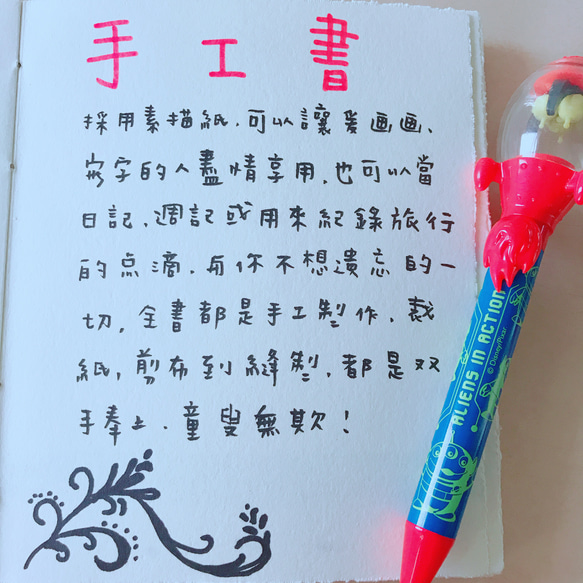 手工書
採用素描紙，可以讓愛画画、
寫字的人盡情享用，也可以當
日記，週記或用來紀錄旅行
的点滴，与你不想遺忘的一
切，全書都是手工製作，裁
紙，剪布到縫製，都是双
手奉上，童叟無欺！
ALIENS IN ACTION
© Disney/Pixar